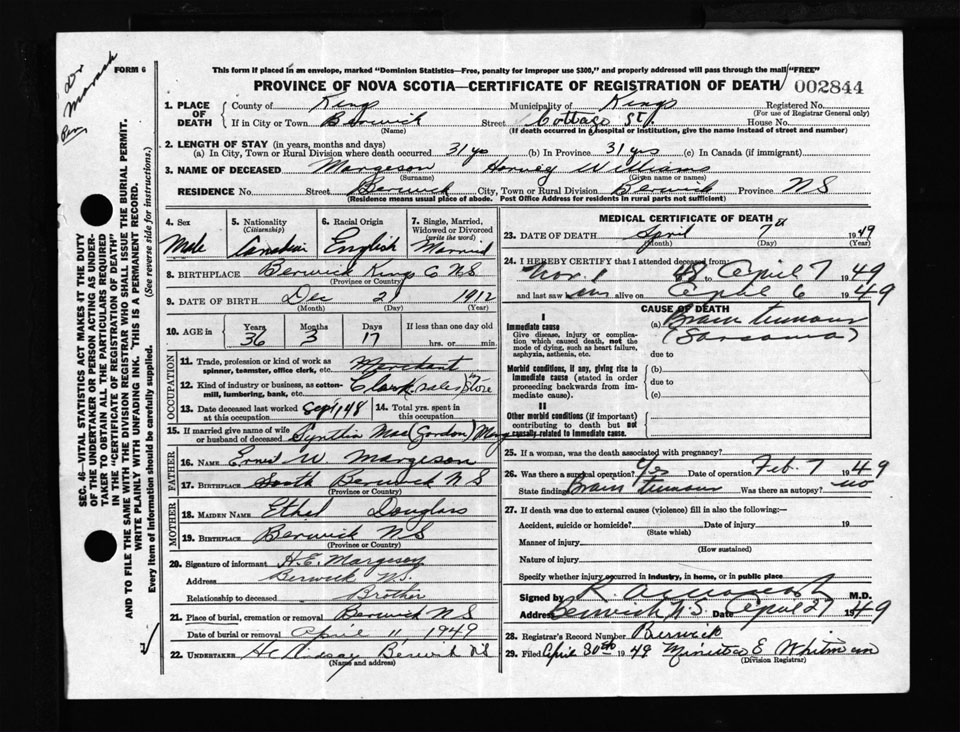 Dr
FORM 6
This form if placed in an envelope, marked "Dominion Statistics—Free, penalty for improper use $300," and properly addressed will pass through the mail "FREE"
PROVINCE OF NOVA SCOTIA—CERTIFICATE OF REGISTRATION OF DEATH 002844
1. PLACE OF DEATH County of Kings Municipality of Kings Registered No.
(For use of Registrar General only)
If in City or Town Berwick Street Cottage St. House No.
(Name) (If death occurred in a hospital or institution, give the name instead of street and number)
2. LENGTH OF STAY (in years, months and days)
(a) In City, Town or Rural Division where death occurred 31 yrs (b) In Province 31 yrs (c) In Canada (if immigrant)
3. NAME OF DECEASED Margeson Harvey Williams
(Surname) (Given name or names)
RESIDENCE No. Street Berwick City, Town or Rural Division Berwick Province NS
(Residence means usual place of abode. Post Office Address for residents in rural parts not sufficient)
4. Sex Male
5. Nationality (Citizenship) Canadian
6. Racial Origin English
7. Single, Married, Widowed or Divorced (write the word) Married
8. BIRTHPLACE Berwick Kings Co NS
(Province or Country)
9. DATE OF BIRTH Dec 21 1912
(Month) (Day) (Year)
10. AGE in Years 36 Months 3 Days 17 If less than one day old hrs. or min.
OCCUPATION
11. Trade, profession or kind of work as spinner, teamster, office clerk, etc. Merchant
12. Kind of industry or business, as cotton-mill, lumbering, bank, etc. sales Store
13. Date deceased last worked at this occupation Sept 1/48 14. Total yrs. spent in this occupation
15. If married give name of wife or husband of deceased Mae (Gordon) Marg
FATHER
16. NAME Ernest W. Margeson
17. BIRTHPLACE South Berwick NS
(Province or Country)
MOTHER
18. MAIDEN NAME Ethel Douglas
19. BIRTHPLACE Berwick NS
(Province or Country)
20. Signature of informant H.E. Margeson
Address Berwick N.S.
Relationship to deceased Brother
21. Place of burial, cremation or removal Berwick NS
Date of burial or removal April 11 1949
22. UNDERTAKER Lindsay Berwick NS
(Name and address)
MEDICAL CERTIFICATE OF DEATH
23. DATE OF DEATH April 7th 1949
(Month) (Day) (Year)
24. I HEREBY CERTIFY that I attended deceased from
Nov. 1 48 to April 7 1949
and last saw him alive on April 6 1949
CAUSE OF DEATH
I
Immediate cause
Give disease, injury or complication which caused death, not the mode of dying, such as heart failure, asphyxia, asthenia, etc.
(a) Brain tumour
(Sarcoma)
due to
Morbid conditions, if any, giving rise to immediate cause (stated in order proceeding backwards from immediate cause).
(b)
due to
(c)
II
Other morbid conditions (if important) contributing to death but not causally related to immediate cause.
25. If a woman, was the death associated with pregnancy?
26. Was there a surgical operation? Yes Date of operation Feb. 7 1949
State finding Brain tumour Was there an autopsy? no
27. If death was due to external causes (violence) fill in also the following:—
Accident, suicide or homicide? Date of injury 19
(State which)
Manner of injury
(How sustained)
Nature of injury
Specify whether injury occurred in industry, in home, or in public place
Signed by M.D.
Address Berwick, N.S. Date April 27 1949
28. Registrar's Record Number Berwick
29. Filed April 30th 1949 E Whitman
(Division Registrar)
SEC. 46—VITAL STATISTICS ACT MAKES IT THE DUTY
OF THE UNDERTAKER OR PERSON ACTING AS UNDER-
TAKER TO OBTAIN ALL THE PARTICULARS REQUIRED
IN THE "CERTIFICATE OF REGISTRATION OF DEATH"
AND TO FILE THE SAME WITH THE DIVISION REGISTRAR WHO SHALL ISSUE THE BURIAL PERMIT.
WRITE PLAINLY WITH UNFADING INK. THIS IS A PERMANENT RECORD.
Every item of information should be carefully supplied. (See reverse side for instructions.)